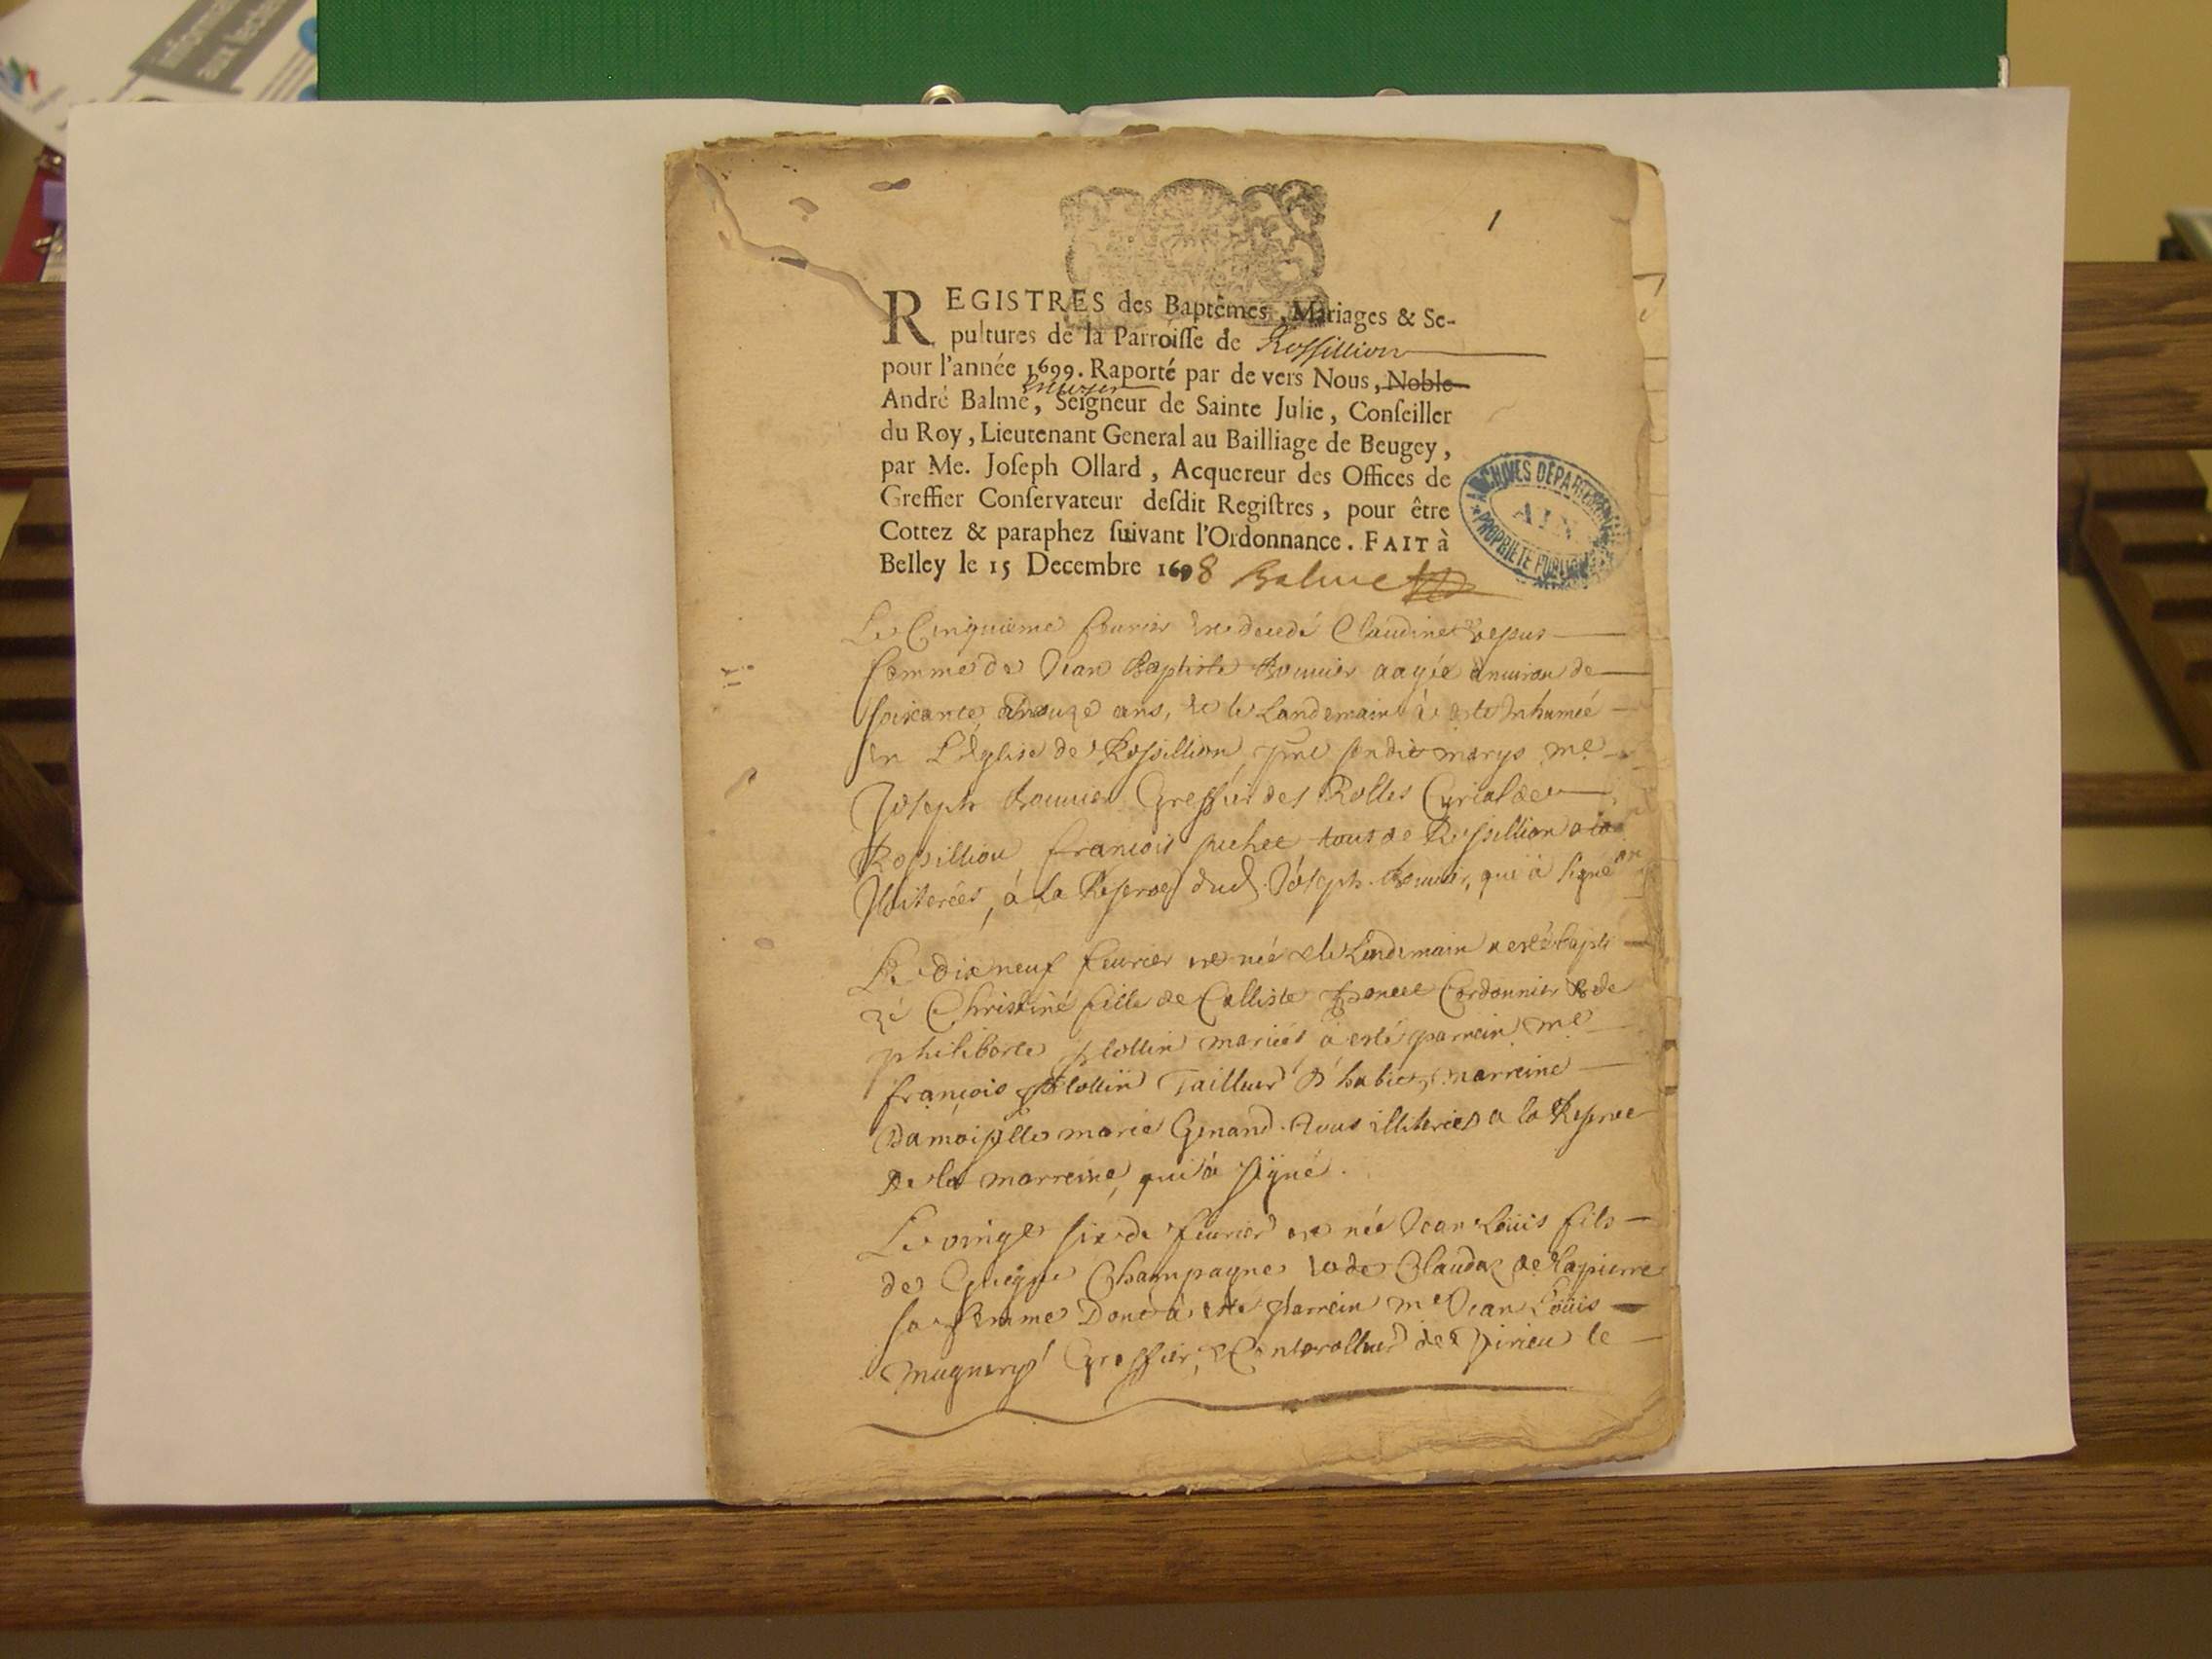 informa
aux lecte
1
REGISTRES des Baptêmes, Mariages & Se-
pultures de la Parroiſſe de Roſſillion
pour l'année 1699. Raporté par de vers Nous, Noble
Ecuyer
André Balme, Seigneur de Sainte Julie, Conſeiller
du Roy, Lieutenant General au Bailliage de Beugey,
par Me. Joſeph Ollard, Acquereur des Offices de
Greffier Conſervateur deſdit Regiſtres, pour être
Cottez & paraphez ſuivant l'Ordonnance. FAIT à
Belley le 15 Decembre 1698 Balme
ARCHIVES DÉPARTEMENTALES
AIN
PROPRIÉTÉ PUBLIQUE
Le Cinquieme feurier decedé Claudine
femme de Jean Baptiste Bouuier aagée enuiron de
soixante ans, le Landemain à esté Inhumée
en L'église de Rossillion, marys me
Joseph Bouuier Greffier des Rolles Curial de
Rossillion françois tous de Rossillion
Illiterées, à la Reserve dud. Joseph Bouuier, que à signé
Le dix neuf feurier née le Landemain a esté bapti
zé Christine fille de Calliste Cordonnier & de
philiberte mariés à esté parrein me
françois Tailleur d'habits, marreine
Damoiselle marie Genand tous illiteres a la Reserve
de la marreine, qui à signé.
Le vingt six de feurier né Jean Loüis fils
de Champagne & de Claudaz de Lapierre
sa femme Dont à esté parrein me Jean Loüis
Greffier, & Conterolleur de Virieu le